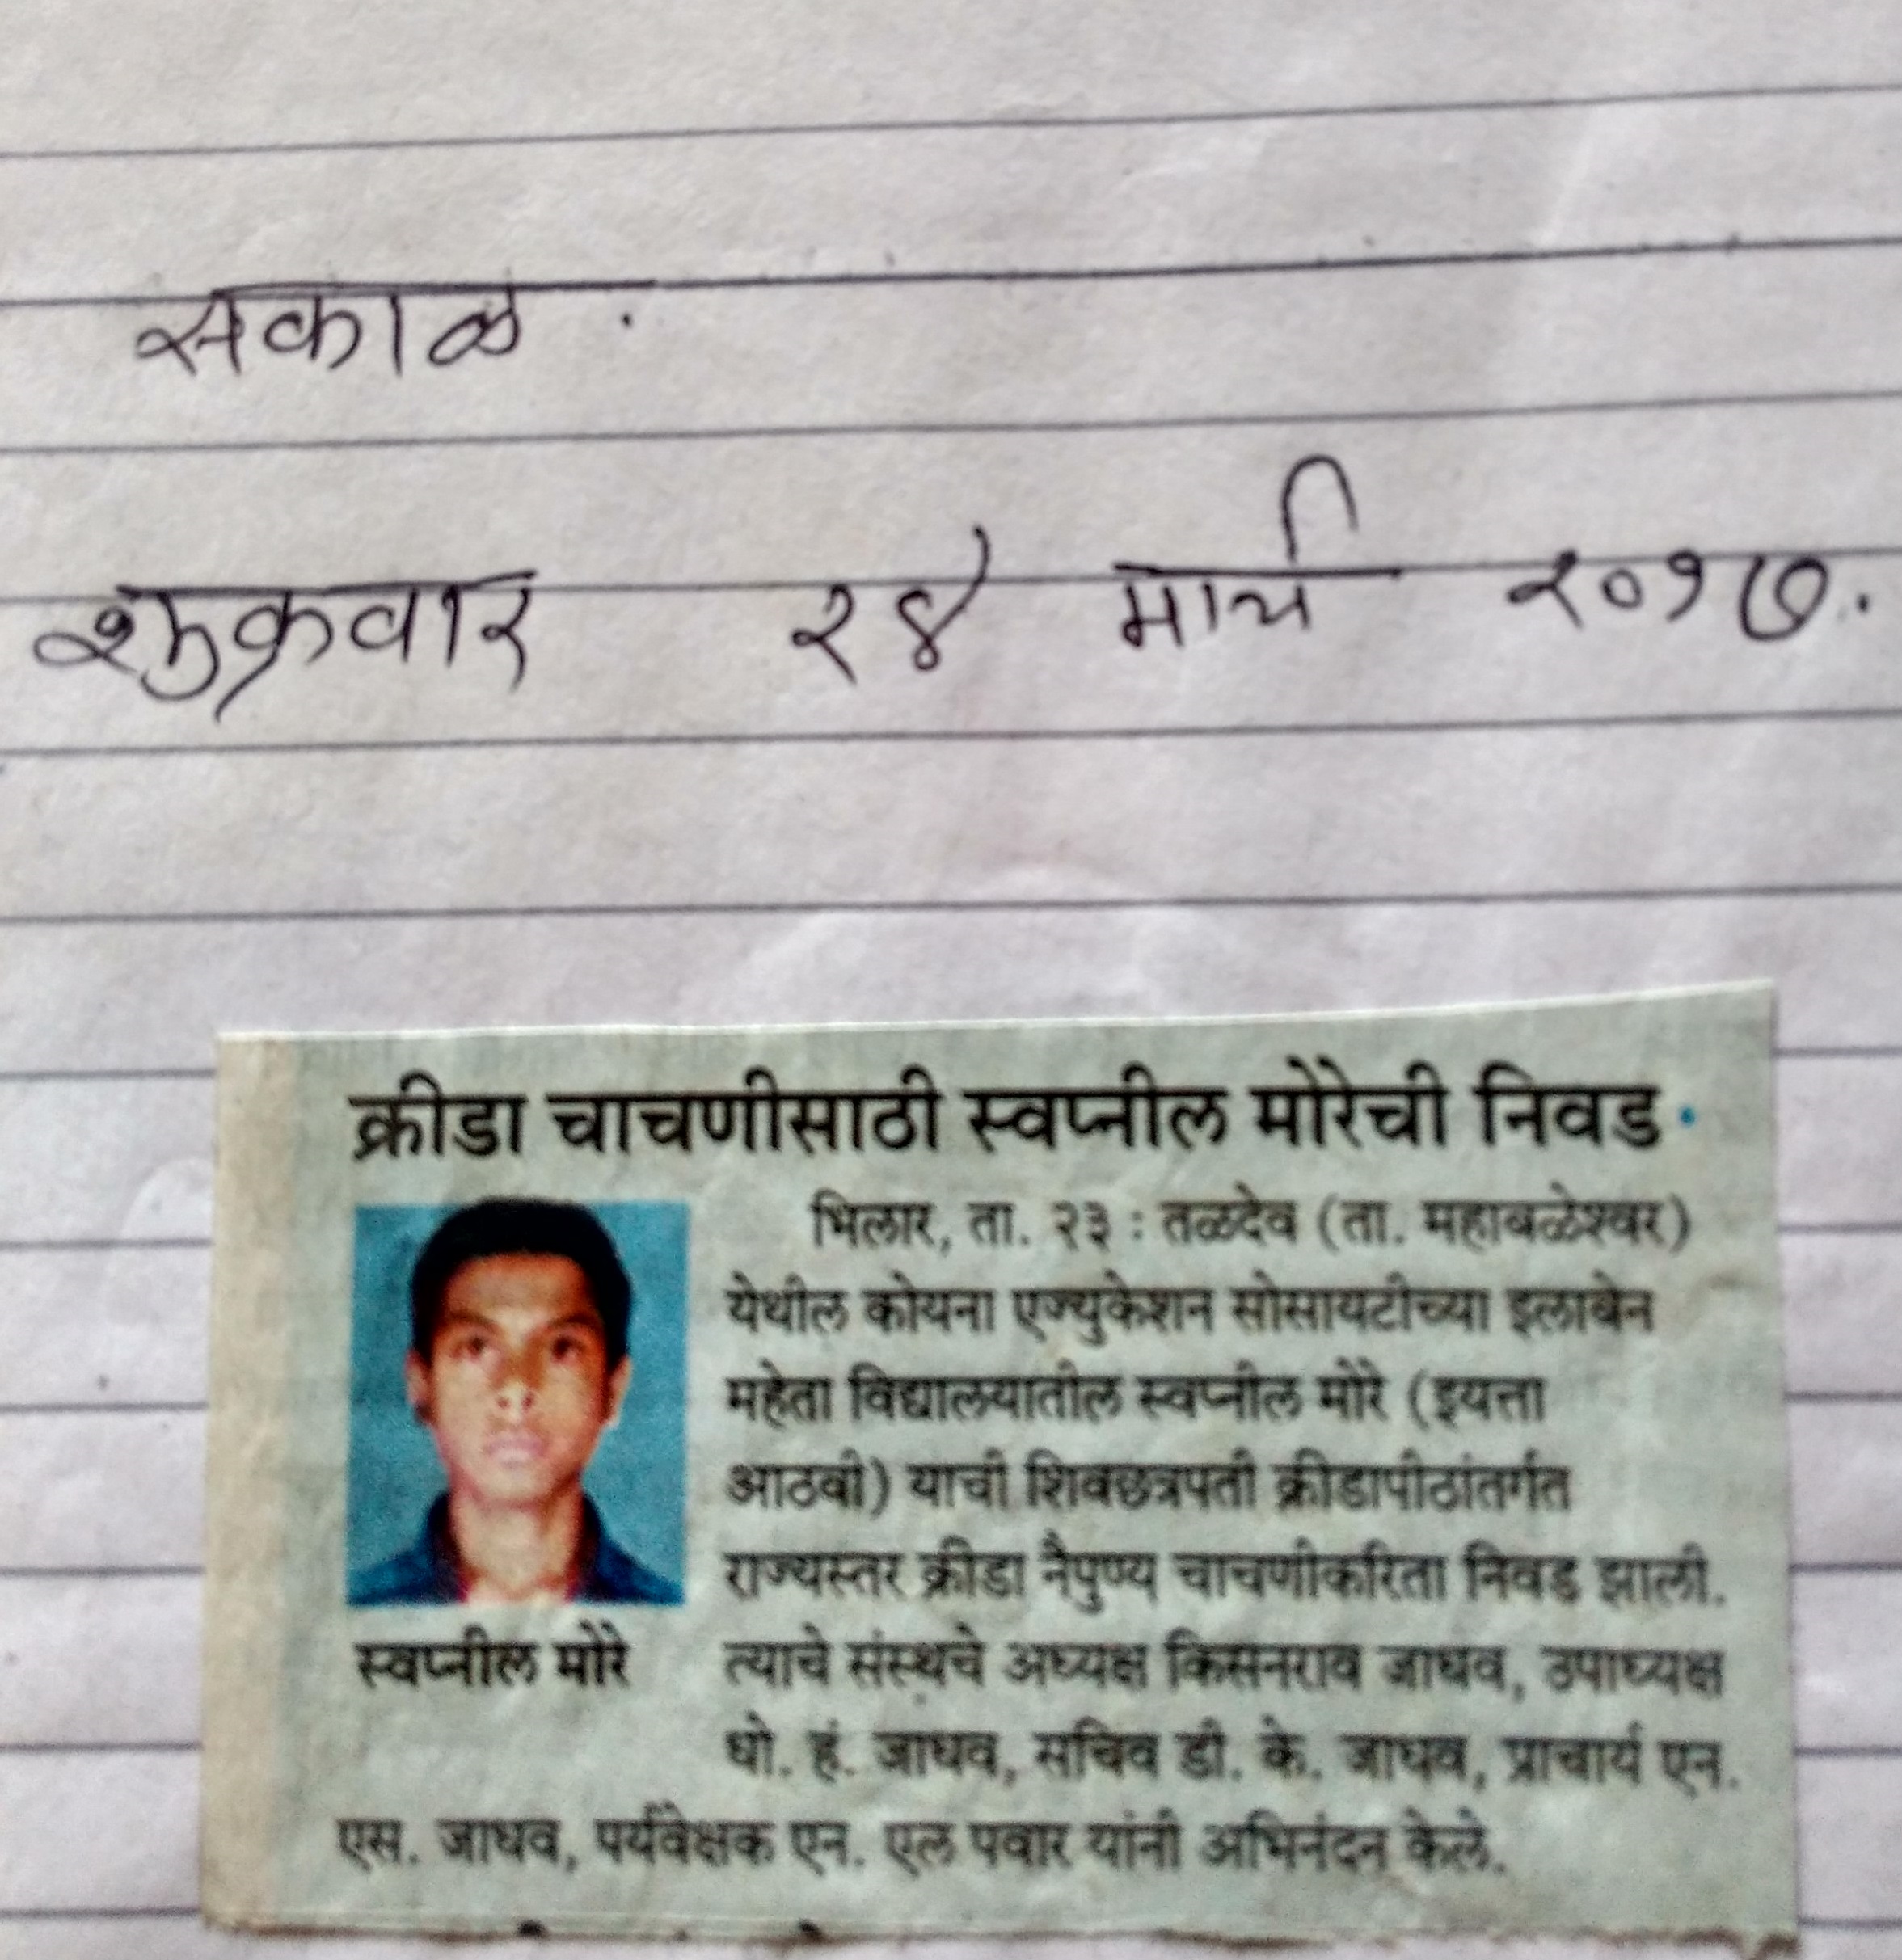 सकाळ.
शुक्रवार २४ मार्च २०१७.
क्रीडा चाचणीसाठी स्वप्नील मोरेची निवड
भिलार, ता. २३ : तळदेव (ता. महाबळेश्वर)
येथील कोयना एज्युकेशन सोसायटीच्या इलाबेन
महेता विद्यालयातील स्वप्नील मोरे (इयत्ता
आठवी) याची शिवछत्रपती क्रीडापीठांतर्गत
राज्यस्तर क्रीडा नैपुण्य चाचणीकरिता निवड झाली.
स्वप्नील मोरे
त्याचे संस्थचे अध्यक्ष किसनराव जाधव, उपाध्यक्ष
धो. हं. जाधव, सचिव डी. के. जाधव, प्राचार्य एन.
एस. जाधव, पर्यवेक्षक एन. एल पवार यांनी अभिनंदन केले.